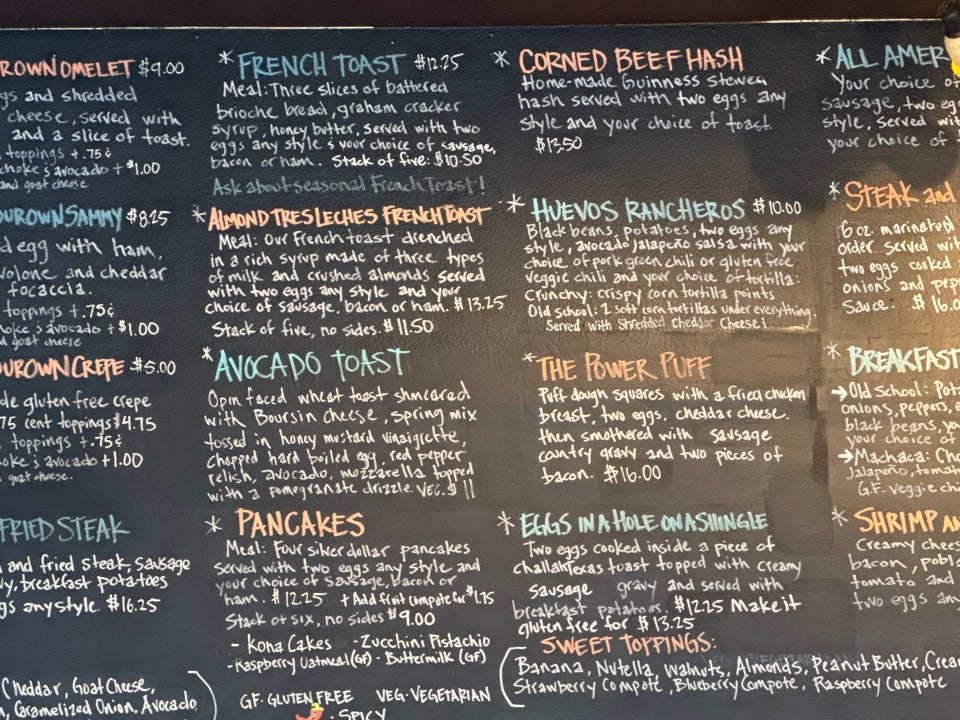 ROWN OMELET $9.00
gs and shredded
cheese, served with
and a slice of toast.
toppings +.75¢
choke & avocado + $1.00
and goat cheese
OUR OWN SAMMY $8.25
d egg with ham,
volone and cheddar
focaccia.
toppings +.75¢
oke & avocado + $1.00
d goat cheese
OUROWN CREPE $5.00
de gluten free crepe
75 cent toppings $4.75
toppings +.75¢
oke & avocado +1.00
goat cheese.
FRIED STEAK
and fried steak, sausage
vy, breakfast potatoes
gs any style $16.25
Cheddar, Goat Cheese,
n, Caramelized Onion, Avocado
* FRENCH TOAST $12.25
Meal: Three slices of battered
brioche bread, graham cracker
syrup, honey butter, served with two
eggs any style & your choice of sausage,
bacon or ham. Stack of five: $10.50
Ask about seasonal French Toast!
* ALMOND TRES LECHES FRENCH TOAST
Meal: Our French toast drenched
in a rich syrup made of three types
of milk and crushed almonds served
with two eggs any style and your
choice of sausage, bacon or ham. $13.25
Stack of five, no sides. $11.50
* AVOCADO TOAST
Open faced wheat toast shmeared
with Boursin cheese, spring mix
tossed in honey mustard vinaigrette,
chopped hard boiled egg, red pepper
relish, avocado, mozzarella topped
with a pomegranate drizzle. VEG. $11
* PANCAKES
Meal: Four silver dollar pancakes
served with two eggs any style and
your choice of sausage, bacon or
ham. $12.25 + Add fruit compote for $1.75
Stack of six, no sides $9.00
- Kona Cakes - Zucchini Pistachio
- Raspberry Oatmeal (GF) - Buttermilk (GF)
GF: GLUTEN FREE VEG: VEGETARIAN
: SPICY
* CORNED BEEF HASH
Home-made Guinness stewed
hash served with two eggs any
style and your choice of toast.
$13.50
* HUEVOS RANCHEROS $10.00
Black beans, potatoes, two eggs any
style, avocado jalapeño salsa with your
choice of pork green chili or gluten free
veggie chili and your choice of tortilla:
Crunchy: crispy corn tortilla points
Old School: 2 soft corn tortillas under everything.
Served with Shredded Cheddar Cheese!
* THE POWER PUFF
Puff dough squares with a fried chicken
breast, two eggs, cheddar cheese.
then smothered with sausage
country gravy and two pieces of
bacon. $16.00
* EGGS IN A HOLE ON A SHINGLE
Two eggs cooked inside a piece of
challah Texas toast topped with creamy
sausage gravy and served with
breakfast potatoes. $12.25 Make it
gluten free for $13.25
SWEET TOPPINGS:
Banana, Nutella, Walnuts, Almonds, Peanut Butter, Crea
Strawberry Compote, Blueberry Compote, Raspberry Compote
* ALL AMER
Your choice of
sausage, two eg
style, served wit
your choice of
* STEAK and
6 oz. marinated
order served wit
two eggs cooked
onions and pep
Sauce. $16.0
* BREAKFAST
→ Old School: Pota
onions, peppers, e
black beans, yo
your choice of
→ Machaca: Cho
Jalapeño, tomat
G.F. veggie chi
* SHRIMP an
Creamy chees
bacon, pobl
tomato and
two eggs an